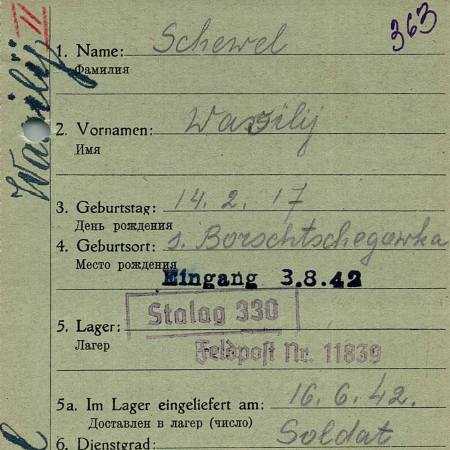 363
II
Wasilij
1. Name: Schewel
Фамилия
2. Vornamen: Wassilij
Имя
3. Geburtstag: 14. 2. 17
День рождения
4. Geburtsort: s. Borschtschegowka
Место рождения
Eingang 3.8.42
Stalag 330
5. Lager:
Лагер
Feldpost Nr. 11839
5a. Im Lager eingeliefert am: 16. 6. 42.
Доставлен в лагер (число)
6. Dienstgrad: Soldat